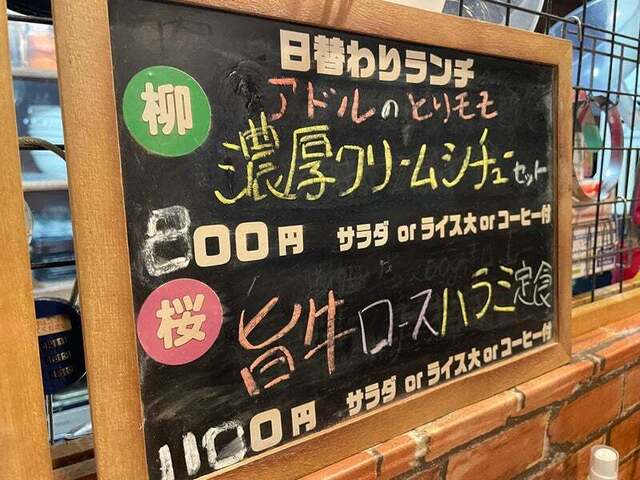 日替わりランチ
柳
アドルのとりモモ
濃厚クリームシチューセット
800円 サラダ or ライス大 or コーヒー付
桜
旨牛ロースハラミ定食
1100円 サラダ or ライス大 or コーヒー付